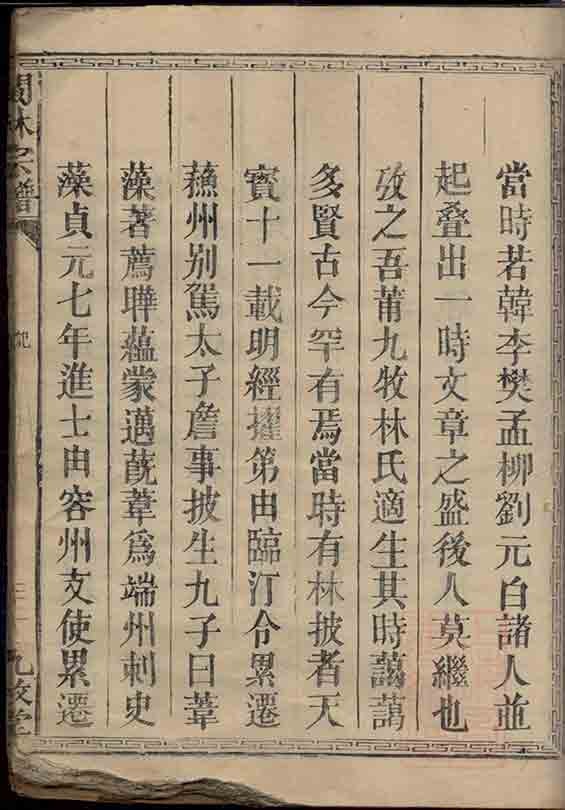 當時若韓李樊孟柳劉元白諸人並
起叠出一時文章之盛後人莫繼也
攷之吾莆九牧林氏適生其時藹藹
多賢古今罕有焉當時有林披者天
寳十一載明經擢第由臨汀令累遷
蘓州別駕太子詹事披生九子曰葦
藻著薦曄蘊蒙邁蔇葦爲端州刺史
藻貞元七年進士由容州支使累遷
林宗譜
九牧堂